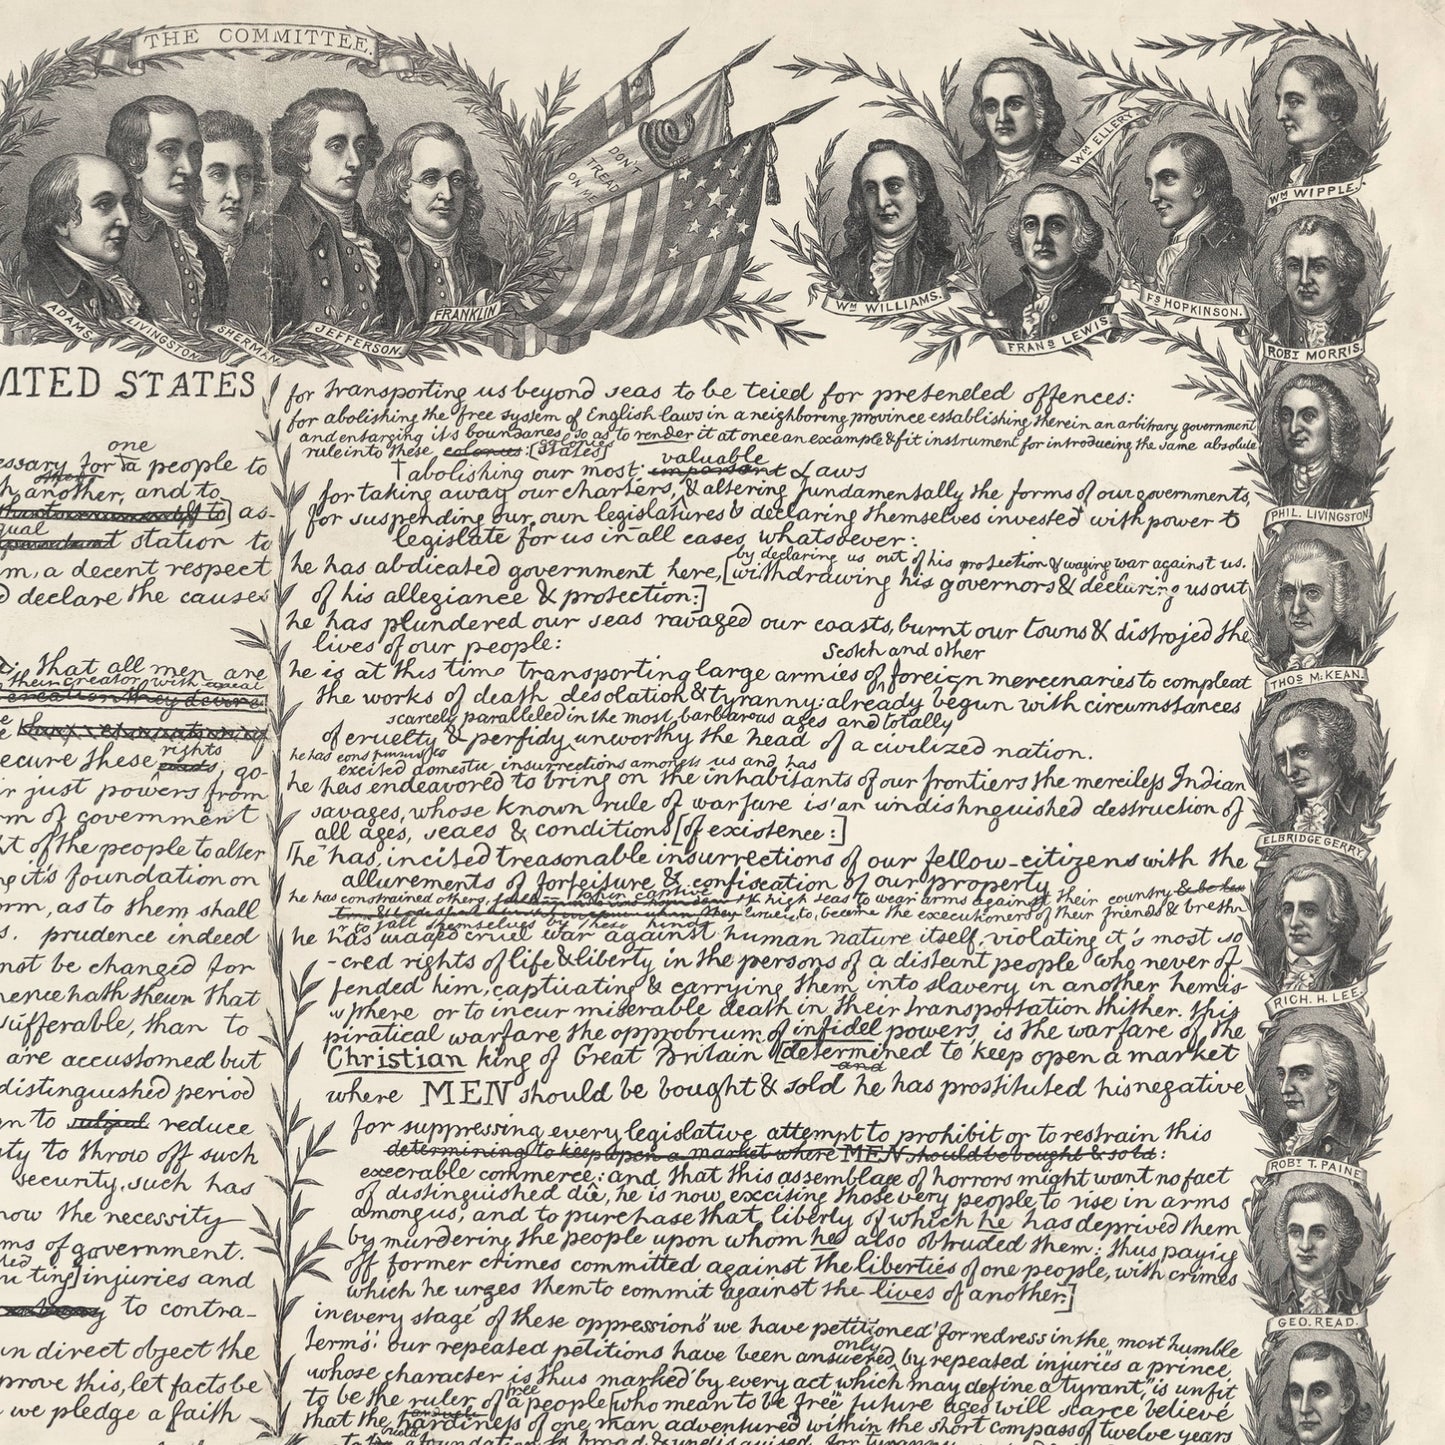 THE COMMITTEE.
DON'T
TREAD
ON ME
ADAMS.
LIVINGSTON.
SHERMAN.
JEFFERSON.
FRANKLIN
Wm WILLIAMS.
Wm ELLERY.
FRANs LEWIS.
Fs HOPKINSON.
Wm WIPPLE.
ROBT MORRIS.
PHIL. LIVINGSTON.
THOS McKEAN.
ELBRIDGE GERRY.
RICH. H. LEE.
ROBT T. PAINE
GEO. READ.
NITED STATES
one
essary for a people to
h another, and to
as-
qual
station to
m, a decent respect
d declare the causes
that all men are
their creator with equal
creation they derive
rights
ecure these ends, go-
ir just powers from
rm of government
ht of the people to alter
ng it's foundation on
orm, as to them shall
s. prudence indeed
not be changed for
rience hath shewn that
sufferable, than to
are accustomed but
distinguished period
gn to subject reduce
uty to throw off such
security, such has
now the necessity
ms of government.
injuries and
to contra-
an direct object the
prove this, let facts be
we pledge a faith
for transporting us beyond seas to be teied for pretended offences:
for abolishing the free system of English laws in a neighboring province establishing therein an arbitrary government
and enlarging it's boundaries so as to render it at once an example & fit instrument for introducing the same absolute
rule into these colonies: [states]
valuable
abolishing our most important Laws
for taking away our charters, & altering fundamentally the forms of our governments,
for suspending our own legislatures & declaring themselves invested with power to
legislate for us in all cases whatsoever:
by declaring us out of his protection & waging war against us.
he has abdicated government here, [withdrawing his governors & declaring us out
of his allegiance & protection:]
he has plundered our seas ravaged our coasts, burnt our towns & distrojed the
lives of our people:
Scotch and other
he is at this time transporting large armies of foreign mercenaries to compleat
the works of death desolation & tyranny: already begun with circumstances
scarcely paralleled in the most barbarous ages and totally
of cruelty & perfidy unworthy the head of a civilized nation.
excited domestic insurrections amongst us and has
he has endeavored to bring on the inhabitants of our frontiers the merciless Indian
savages, whose known rule of warfare is an undistinguished destruction of
all ages, seaes & conditions [of existence:]
[he has incited treasonable insurrections of our fellow-citizens with the
allurements of forfeiture & confiscation of our property
he has constrained others, taken captive on the high seas to bear arms against their country
to become the executioners of their friends & brethn
or to fall themselves by these hands
he has waged cruel war against human nature itself, violating it's most so
-cred rights of life & liberty in the persons of a distant people who never of
fended him, captivating & carrying them into slavery in another hemis-
phere or to incur miserable death in their transportation thither. this
piratical warfare the opprobrium of infidel powers, is the warfare of the
Christian king of Great Britain [determined to keep open a market
and
where MEN should be bought & sold he has prostituted his negative
for suppressing every legislative attempt to prohibit or to restrain this
determining to keep open a market where MEN should be bought & sold:
execrable commerce: and that this assemblage of horrors might want no fact
of distinguished die, he is now excising those very people to rise in arms
among us, and to purchase that liberty of which he has deprived them
by murdering the people upon whom he also obtruded them: thus paying
off former crimes committed against the liberties of one people, with crimes
which he urges them to commit against the lives of another.]
in every stage of these oppressions we have petitioned for redress in the most humble
only
terms: our repeated petitions have been answered by repeated injuries a prince,
whose character is thus marked by every act which may define a tyrant, is unfit
free
to be the ruler of a people [who mean to be free future ages will scarce believe
that the hardiness of one man adventured within the short compass of twelve years